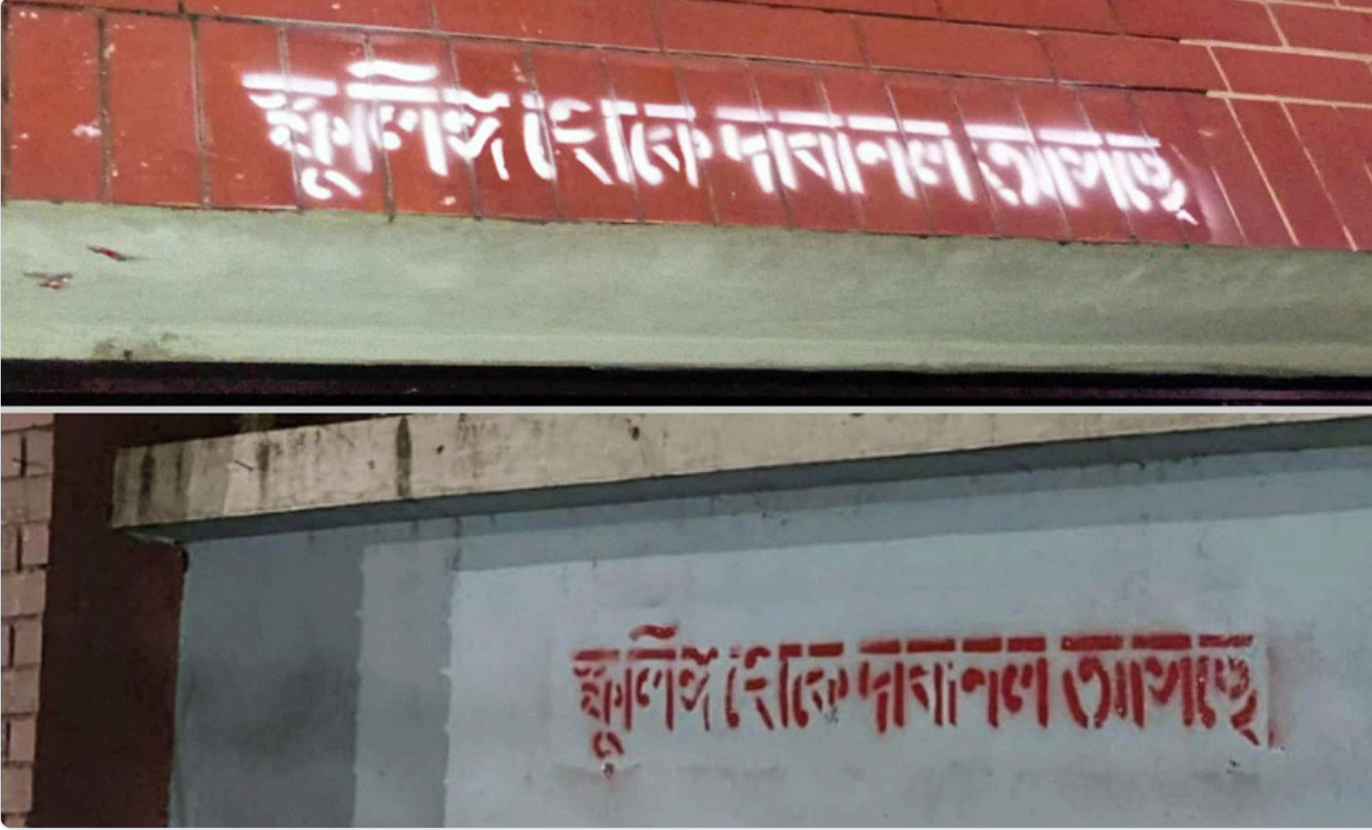 স্ফুলিঙ্গ থেকে দাবানল আসছে
স্ফুলিঙ্গ থেকে দাবানল আসছে